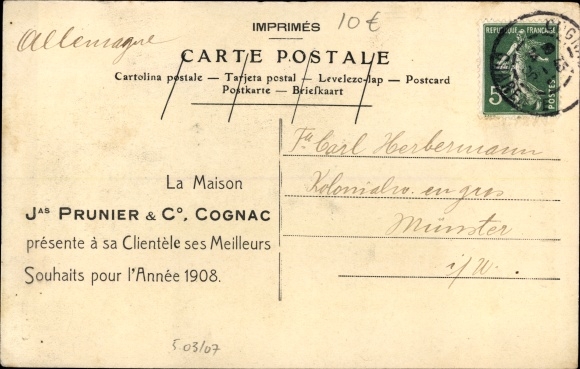 IMPRIMÉS
10 €
Allemagne
CARTE POSTALE
Cartolina postale — Tarjeta postal — Levelezo-lap — Postcard
Postkarte — Briefkaart
REPUBLIQUE FRANÇAISE
5
POSTES
Fa Carl Herbermann
Kolonialw. en gros
Münster
i/W.
La Maison
JAS PRUNIER & Cº, COGNAC
présente à sa Clientèle ses Meilleurs
Souhaits pour l'Année 1908.
5.03/07